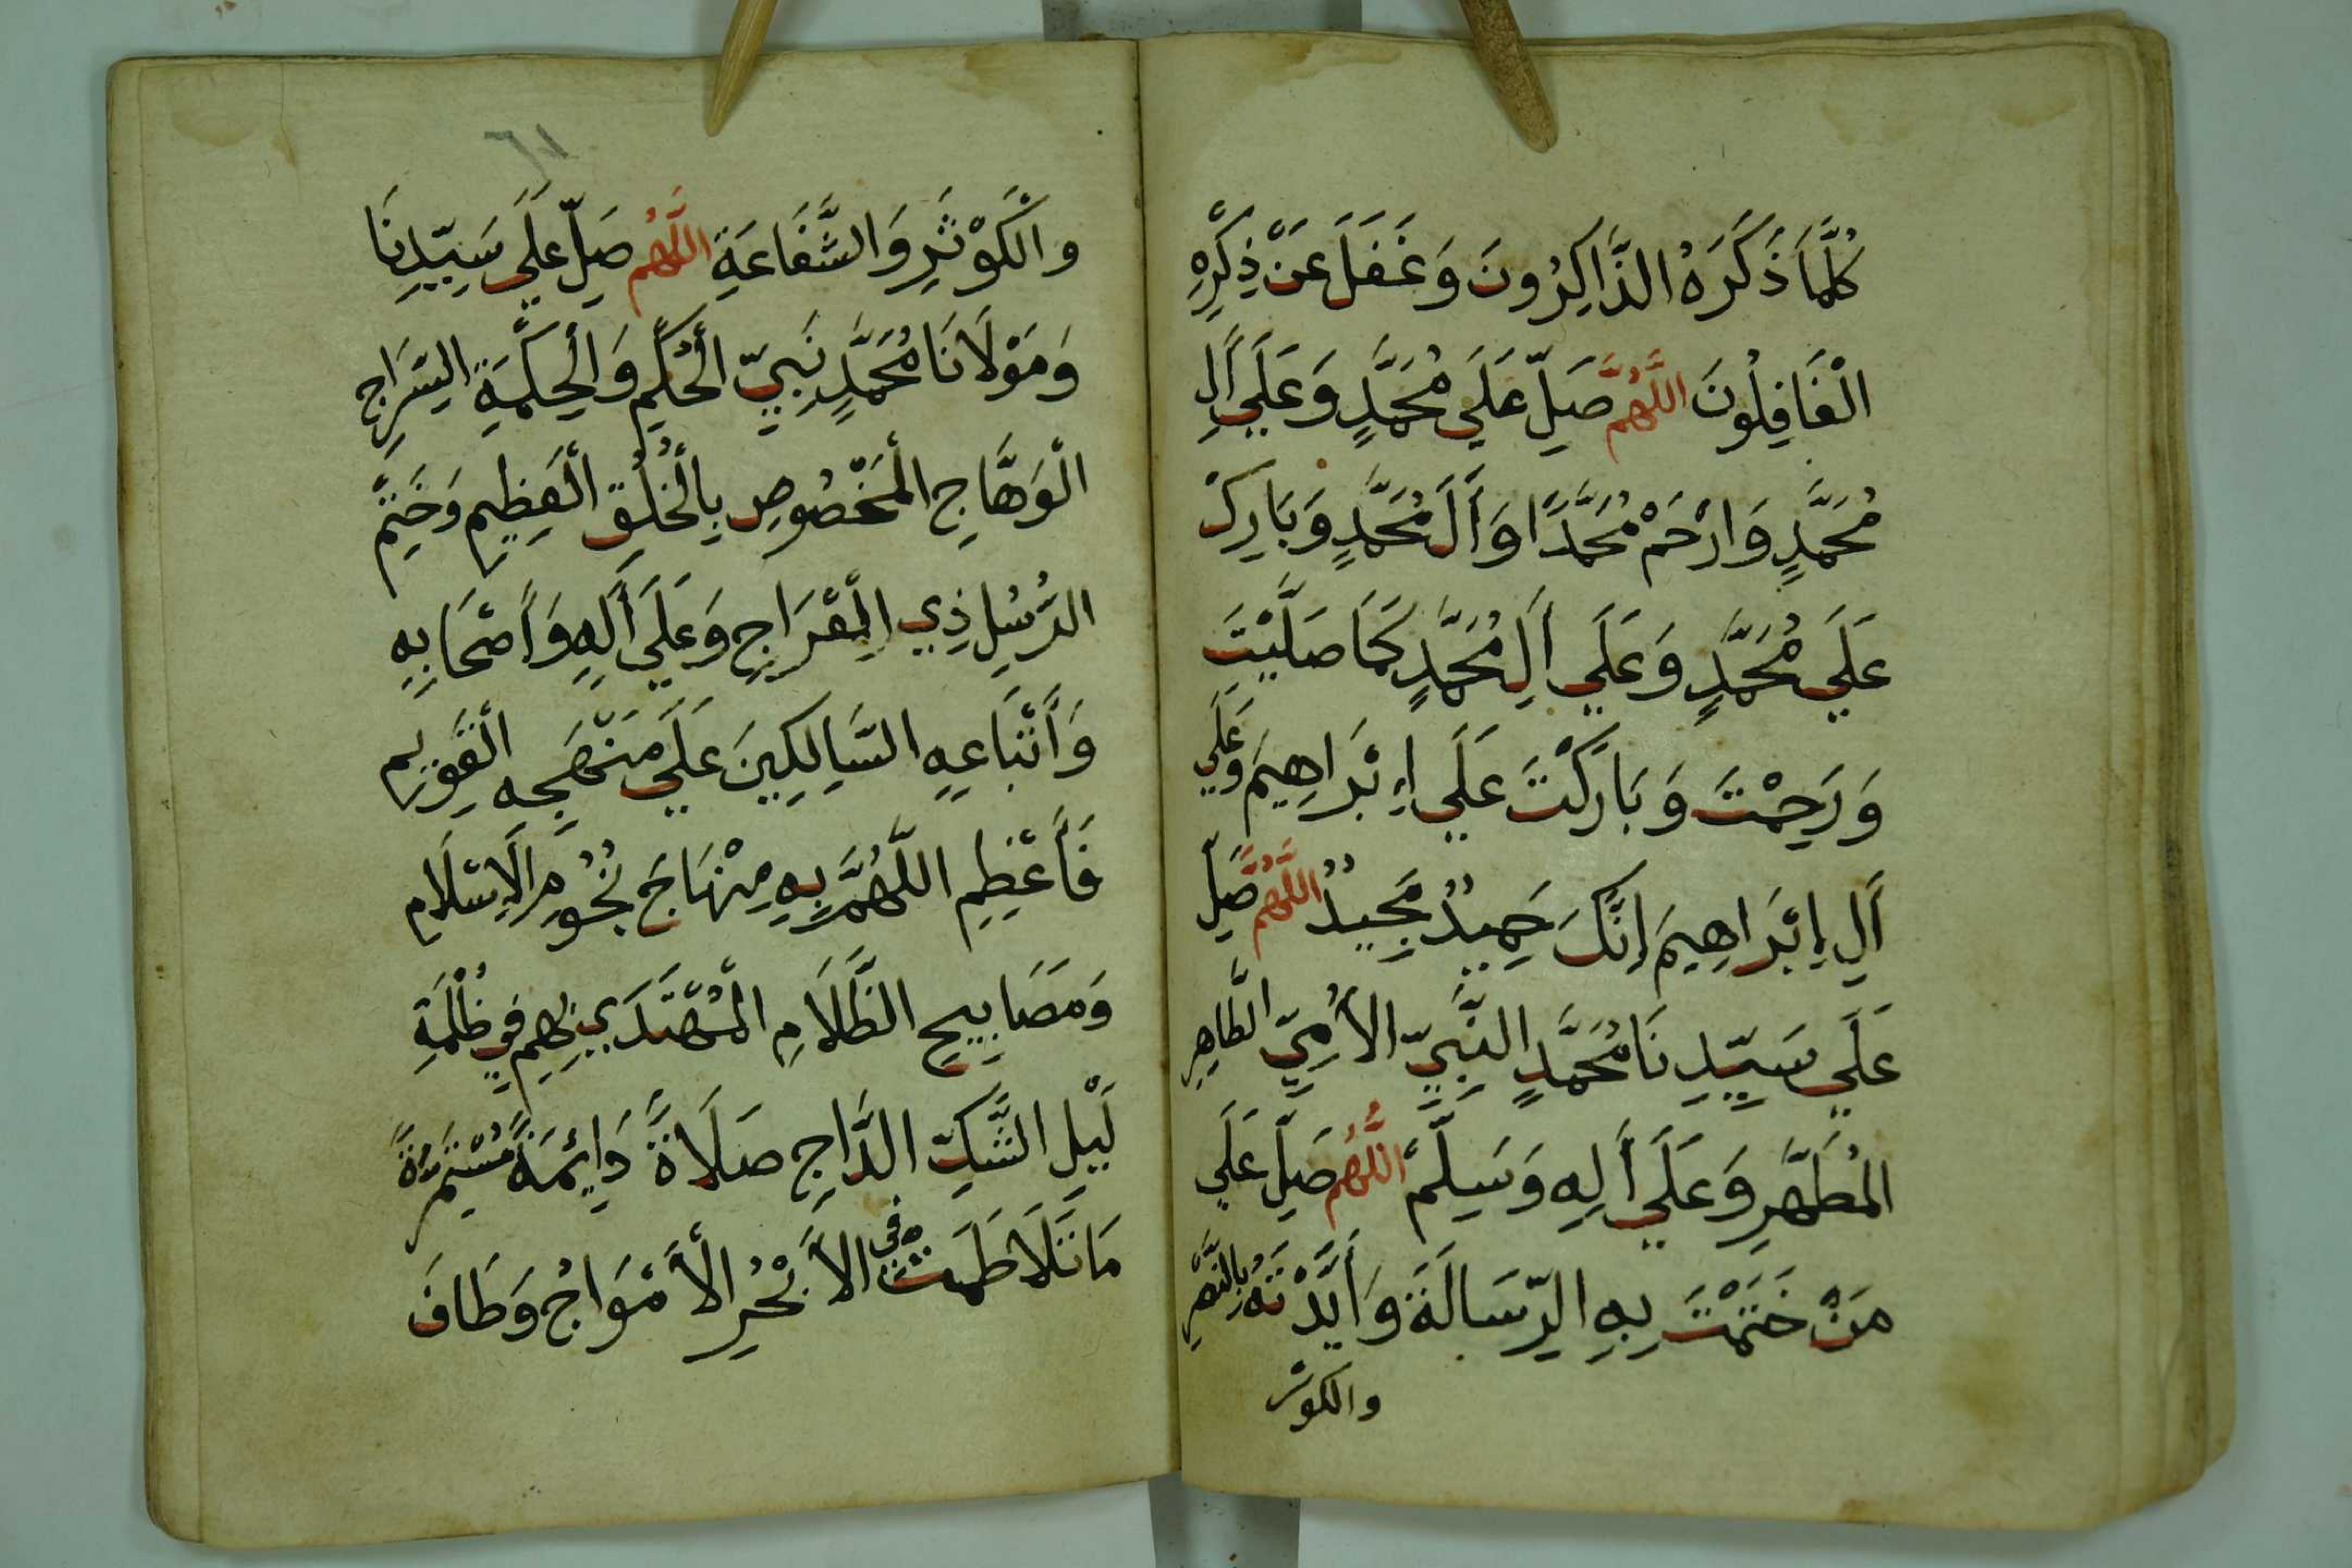 كُلَّمَا ذَكَرَهُ الذَّاكِرُونَ وَغَفَلَ عَنْ ذِكْرِهِ
الْغَافِلُونَ اللَّهُمَّ صَلِّ عَلَي مُحَمَّدٍ وَعَلَي اَلِ
مُحَمَّدٍ وَارْحَمْ مُحَمَّدًا وَاَلَ مُحَمَّدٍ وَبَارِكْ
عَلَي مُحَمَّدٍ وَعَلَي اَلِ مُحَمَّدٍ كَمَا صَلَّيْتَ
وَرَحِمْتَ وَبَارَكْتَ عَلَي اِبْرَاهِيمَ وَعَلَي
اَلِ اِبْرَاهِيمَ اِنَّكَ حَمِيدٌ مَجِيدٌ اللَّهُمَّ صَلِّ
عَلَي سَيِّدِنَا مُحَمَّدٍ النَّبِيِّ الأُمِّيِّ الطَّاهِرِ
المُطَهَّرِ وَعَلَي اَلِهِ وَسَلِّمْ اللَّهُمَّ صَلِّ عَلَي
مَنْ خَتَمْتَ بِهِ الرِّسَالَةَ وَاَيَّدْتَهُ بِالنَّصْرِ
والكوثر
٦١
والْكَوْثَرِ وَالشَّفَاعَةِ اللَّهُمَّ صَلِّ عَلَي سَيِّدِنَا
وَمَوْلَانَا مُحَمَّدٍ نَبِيِّ الْحُكْمِ وَالْحِكْمَةِ السِّرَاجِ
الْوَهَّاجِ الْمَخْصُوصِ بِالْخُلُقِ الْعَظِيمِ وَخَتْمِ
الرُّسُلِ ذِي الْمِعْرَاجِ وَعَلَي اَلِهِ وَاَصْحَابِهِ
وَاَتْبَاعِهِ السَّالِكِينَ عَلَي مَنْهَجِهِ الْقَوِيمِ
فَاَعْظِمِ اللَّهُمَّ بِهِ مِنْهَاجَ نُجُومِ الْاِسْلَامِ
وَمَصَابِيحِ الظَّلَامِ الْمُهْتَدَي بِهِمْ فِي ظُلْمَةِ
لَيْلِ الشَّكِّ الدَّاجِ صَلَاةً دَائِمَةً مُسْتَمِرَّةً
مَا تَلَاطَمَتْ فِي الْاَبْحُرِ الْاَمْوَاجُ وَطَافَ